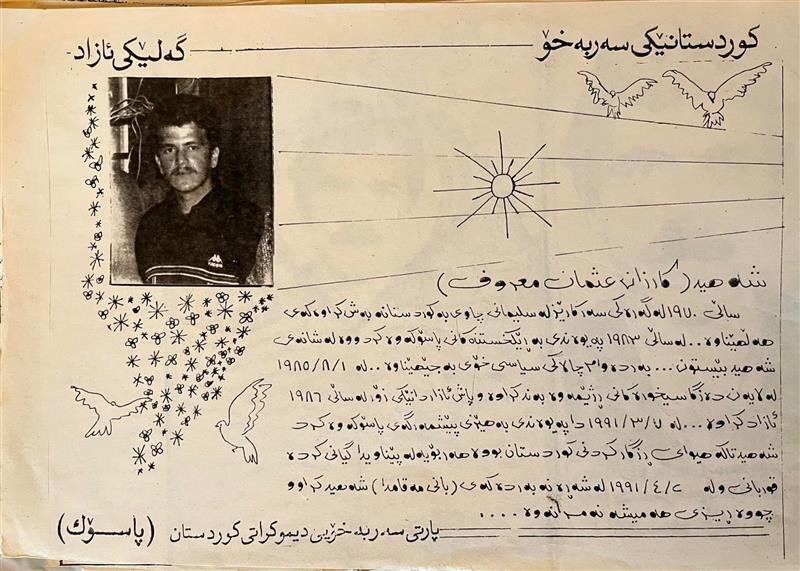 كوردستانێكی سەربەخۆ ــ گەلێكی ئازاد
شەهید (كارزان عثمان معروف)
ساڵی ١٩٧٠ لەگەڕەكی سەركارێز لە سلیمانی چاوی بەكوردستانە بەش كراوەكەی
هەڵهێناوە... لەساڵی ١٩٨٣ پەیوەندی بەڕێكخستنەكانی پاسۆكەوە كردووە لەشانەی
شەهید بێستون... بەردەوام چالاكی سیاسی خۆی بەجێهێناوە.. لە ١٩٨٥/٨/١
لەلایەن دەزگا سیخوڕەكانی ڕژێمەوە بەندكراوە و پاش ئازاردانێكی زۆر لەساڵی ١٩٨٦
ئازاد كراوە... لە ١٩٩١/٣/٧ دا پەیوەندی بەهێزی پێشمەرگەی پاسۆكەوە كرد
شەهید تاكە هیوای ڕزگاركردنی كوردستان بووە هەر بۆیە لە پێناویدا گیانی كردە
قوربانی و لە ١٩٩١/٤/٢ لە شەڕە نەبەردەكەی (بانی مەقامدا) شەهید كراو و
چووە ڕیزی هەمیشە نەمرانەوە....
پارتی سەربەخۆیی دیموكراتی كوردستان (پاسۆك)